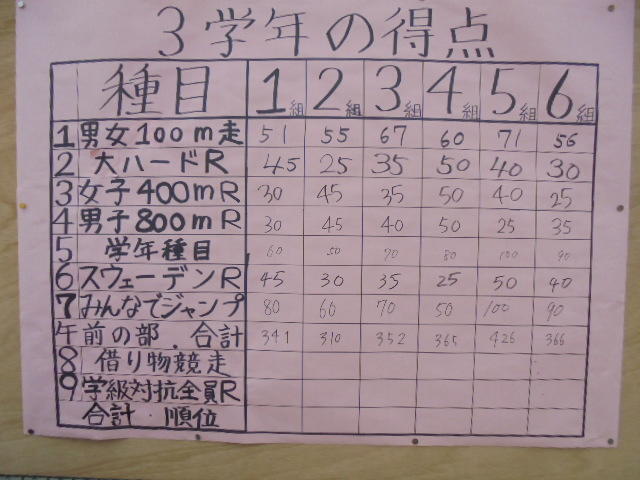 3学年の得点
種目 1組 2組 3組 4組 5組 6組
1 男女100m走 51 55 67 60 71 56
2 大ハードR 45 25 35 50 40 30
3 女子400mR 30 45 35 50 40 25
4 男子800mR 30 45 40 50 25 35
5 学年種目 60 50 70 80 100 90
6 スウェーデンR 45 30 35 25 50 40
7 みんなでジャンプ 80 60 70 50 100 90
午前の部.合計 341 310 352 365 426 366
8 借り物競走
9 学級対抗全員R
合計・順位